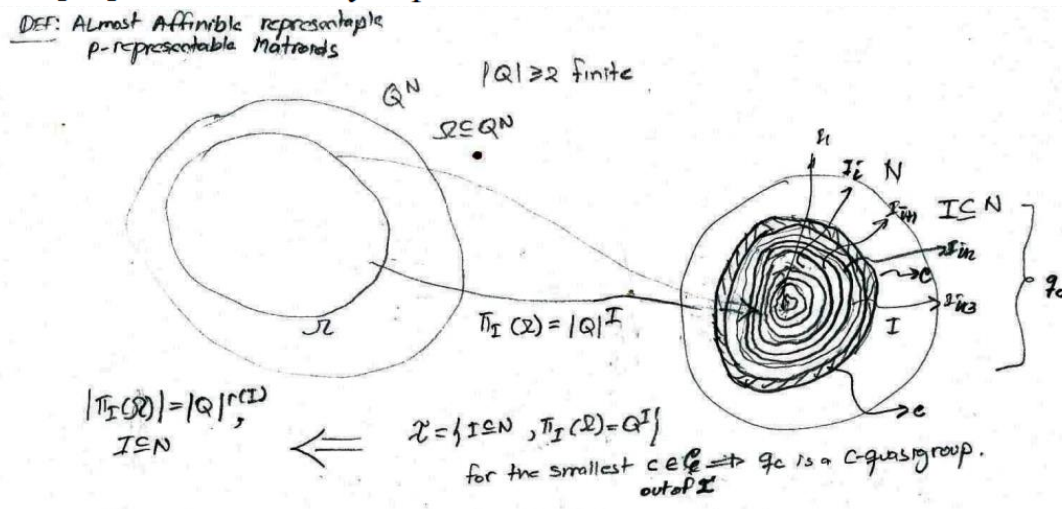 DEF: ALmost Affinible representaple
p-representable Matroids
Q^N
|Q|≥2 finite
Ω⊆Q^N
N
I_i
I⊆N
c
I
Ω
π_I(Ω)=|Q|^I
e
|π_I(Ω)|=|Q|^{r(I)},
I⊆N
⇐
I={I⊆N, π_I(Ω)=Q^I}
for the smallest c∈ ⇒ q_c is a C-quasigroup.
out of I